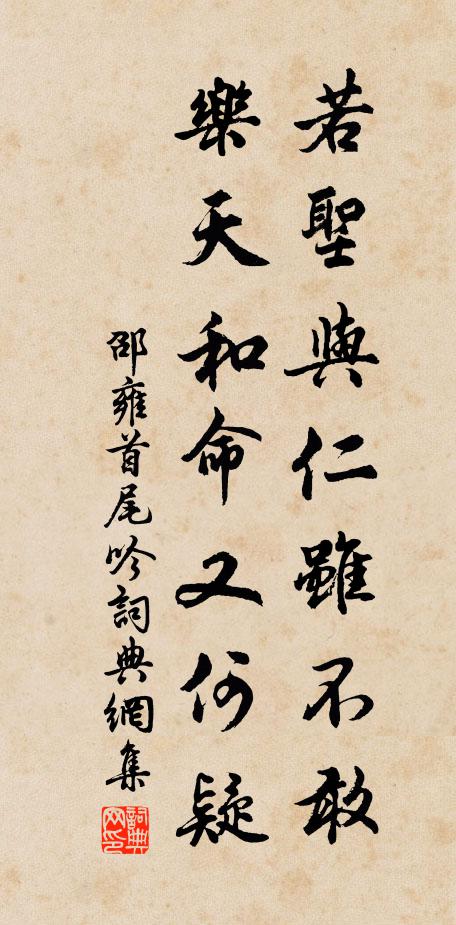 若聖與仁雖不敢
樂天和命又何疑
邵雍首尾吟詞典網集
詞典網印